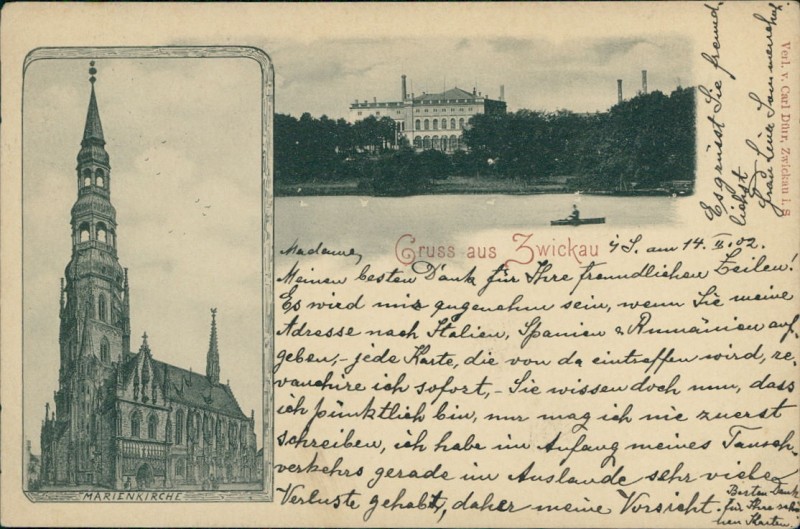 MARIENKIRCHE
Gruss aus Zwickau
i/S. am 14. II. 02.
Madame,
Meinen besten Dank für Ihre freundlichen Zeilen!
Es wird mir angenehm sein, wenn Sie meine
Adresse nach Italien, Spanien & Rumänien auf-
geben, - jede Karte, die von da eintreffen wird, re-
vanchire ich sofort, - Sie wissen doch nun, dass
ich pünktlich bin, nur mag ich nie zuerst
schreiben, ich habe im Anfang meines Tausch-
verkehrs gerade im Auslande sehr viele
Verluste gehabt, daher meine Vorsicht.
Besten Dank
für Ihre schö-
nen Karten.
Es grüsst Sie freund-
lichst
Frau
Verl. v. Carl Dürr, Zwickau i. S